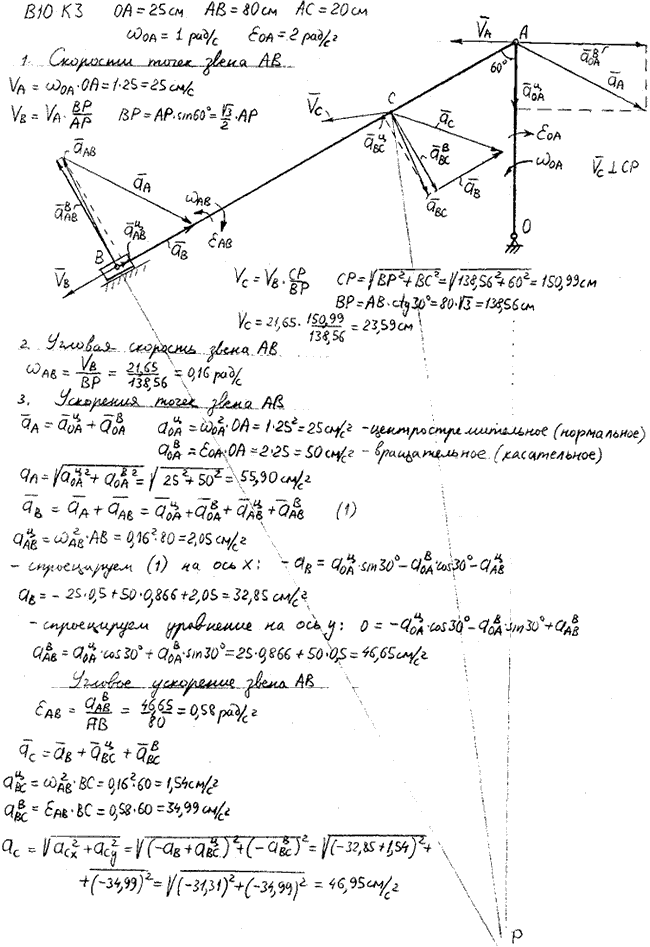 В10 К3 OA=25см AB=80см AC=20см
ω_OA=1 рад/с ε_OA=2 рад/с²
1. Скорости точек звена AB
V_A=ω_OA·OA=1·25=25 см/с
V_B=V_A·BP/AP BP=AP·sin60°=√3/2·AP
V̄_A A ā_OA^в ā_A
60° ā_OA^ц
C V̄_C ā_C ā_BC^ц ā_BC^в ā_B ā_BC
ε_OA ω_OA V̄_C⊥CP
O
ā_AB ā_A ā_AB^в ā_AB^ц B ā_B V̄_B ω_AB ε_AB
V_C=V_B·CP/BP CP=√(BP²+BC²)=√(138,56²+60²)=150,99см
BP=AB·ctg30°=80·√3=138,56см
V_C=21,65·150,99/138,56=23,59см
2. Угловая скорость звена AB
ω_AB=V_B/BP=21,65/138,56=0,16 рад/с
3. Ускорения точек звена AB
ā_A=ā_OA^ц+ā_OA^в a_OA^ц=ω_OA²·OA=1·25²=25см/с² -центростремительное (нормальное)
a_OA^в=ε_OA·OA=2·25=50см/с² -вращательное (касательное)
a_A=√(a_OA^ц²+a_OA^в²)=√(25²+50²)=55,90см/с²
ā_B=ā_A+ā_AB=ā_OA^ц+ā_OA^в+ā_AB^ц+ā_AB^в (1)
a_AB^ц=ω_AB²·AB=0,16²·80=2,05см/с²
- спроецируем (1) на ось x: -a_B=a_OA^ц·sin30°-a_OA^в·cos30°-a_AB^ц
a_B=-25·0,5+50·0,866+2,05=32,85см/с²
- спроецируем уравнение на ось y: 0=-a_OA^ц·cos30°-a_OA^в·sin30°+a_AB^в
a_AB^в=a_OA^ц·cos30°+a_OA^в·sin30°=25·0,866+50·0,5=46,65см/с²
Угловое ускорение звена AB
ε_AB=a_AB^в/AB=46,65/80=0,58 рад/с²
ā_C=ā_B+ā_BC^ц+ā_BC^в
a_BC^ц=ω_AB²·BC=0,16²·60=1,54см/с²
a_BC^в=ε_AB·BC=0,58·60=34,99см/с²
a_C=√(a_Cx²+a_Cy²)=√((-a_B+a_BC^ц)²+(-a_BC^в)²)=√((-32,85+1,54)²+
+(-34,99)²=√((-31,31)²+(-34,99)²)=46,95см/с²
P